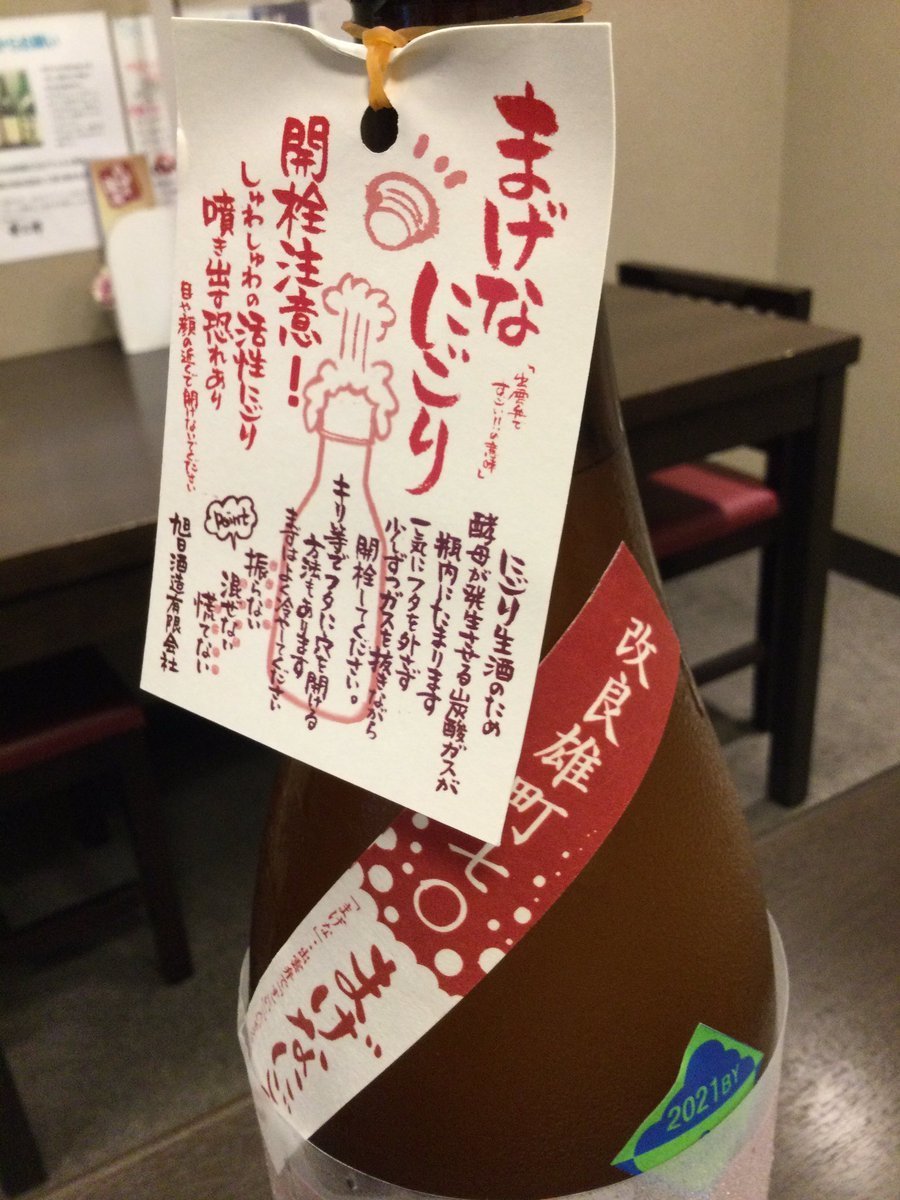 まげな
にごり
「出雲弁で
すごい!!の意味」
開栓注意!
しゅわしゅわの活性にごり
噴き出す恐れあり
目や顔の近くで開けないでください
にごり生酒のため
酵母が発生させる炭酸ガスが
瓶内にたまります
一気にフタを外さず
少しずつガスを抜きながら
開栓してください。
キリ等でフタに穴を開ける
方法もあります
まずはよく冷やしてください
Point
振らない
混ぜない
慌てない
旭日酒造有限会社
改良雄町七〇
まげなにご
2021BY